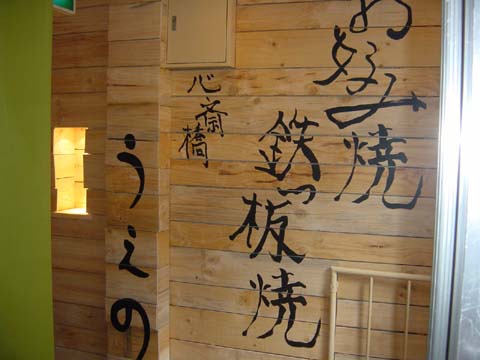 お好み焼
鉄板焼
心斎橋
うえの